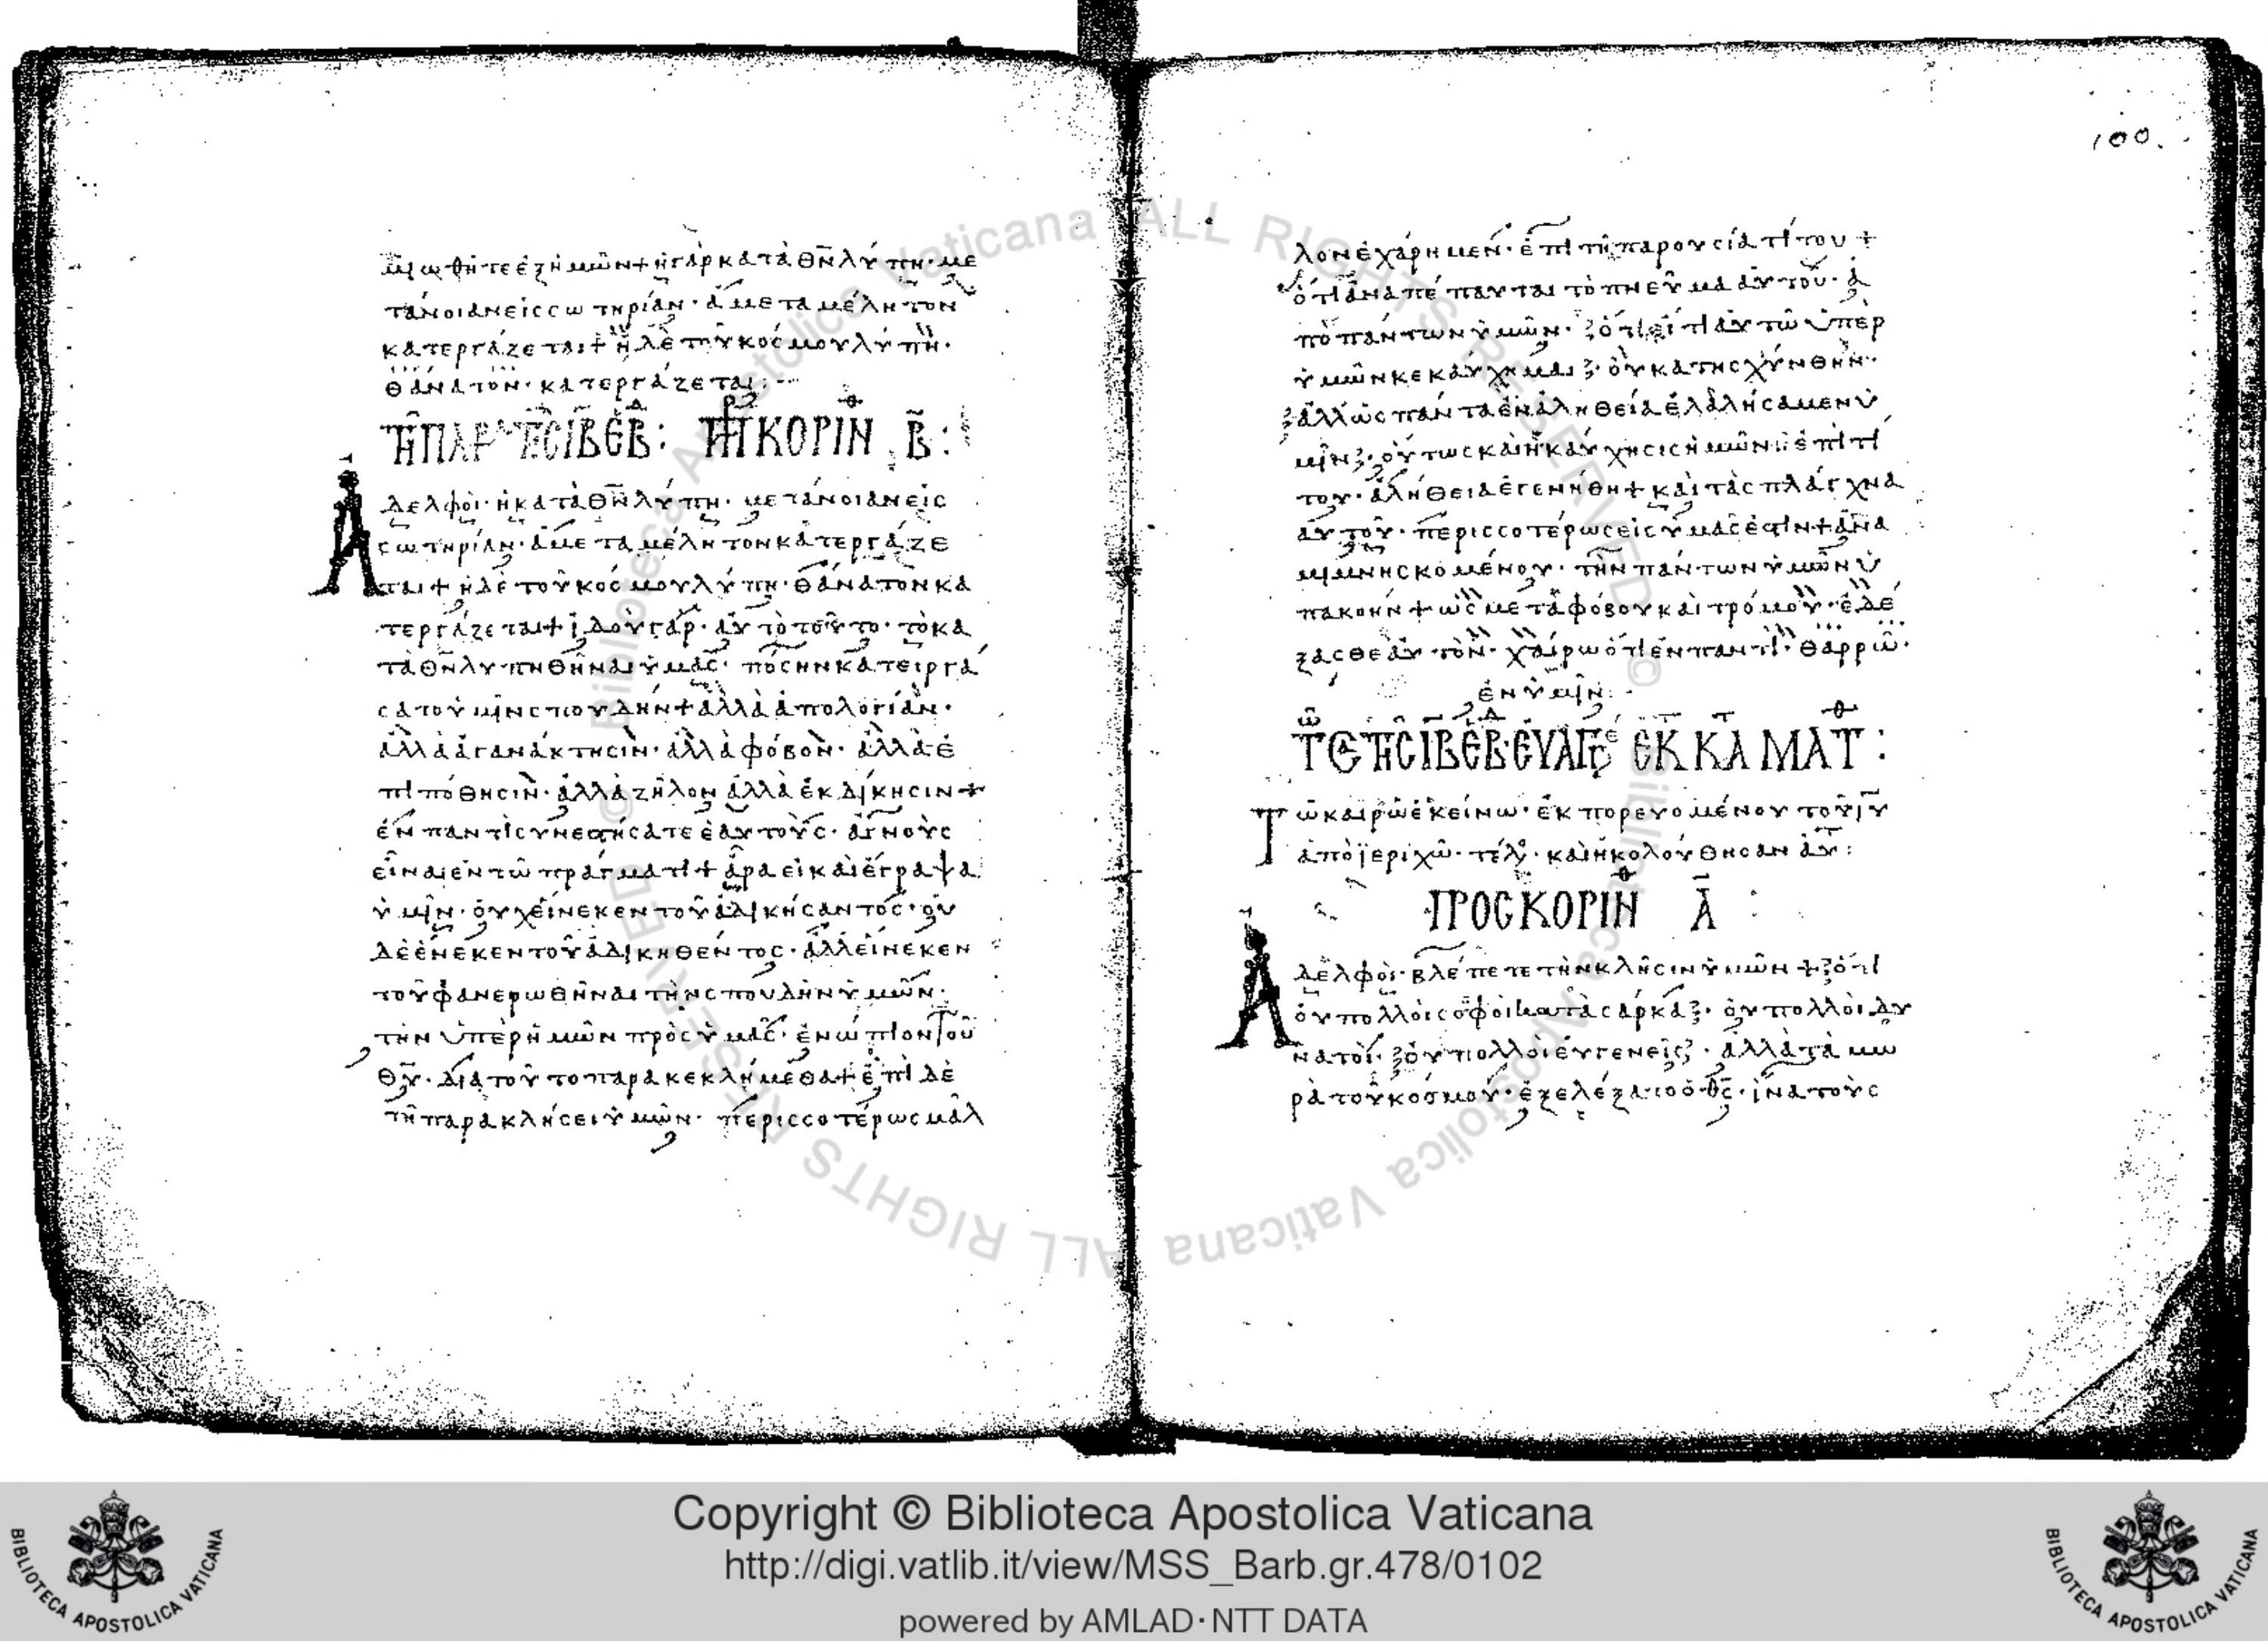 μιωθῆτε ἐξ ἡμῶν + ἡ γὰρ κατὰ θ̅ν̅ λύπη · με
τάνοιαν εἰς σωτηρίαν · ἀμεταμέλητον
κατεργάζεται + ἡ δὲ τοῦ κόσμου λύπη ·
θάνατον · κατεργάζεται :
ΚΟΡΙΝΘ Β :
Ἀδελφοὶ · ἡ κατὰ θ̅ν̅ λύπη · μετάνοιαν εἰς
σωτηρίαν · ἀμεταμέλητον κατεργάζε
ται + ἡ δὲ τοῦ κόσμου λύπη · θάνατον κα
τεργάζεται + ἰδοὺ γάρ · αὐτὸ τοῦτο · τὸ κα
τὰ θ̅ν̅ λυπηθῆναι ὑμᾶς · πόσην κατειργά
σατο ὑμῖν σπουδήν + ἀλλὰ ἀπολογίαν ·
ἀλλὰ ἀγανάκτησιν · ἀλλὰ φόβον · ἀλλὰ ἐ
πιπόθησιν · ἀλλὰ ζῆλον ἀλλὰ ἐκδίκησιν +
ἐν παντὶ συνεστήσατε ἑαυτοὺς · ἁγνοὺς
εἶναι ἐν τῶ πράγματι + ἄρα εἰ καὶ ἔγραψα
ὑμῖν · οὐχ εἵνεκεν τοῦ ἀδικήσαντος · οὐ
δὲ ἕνεκεν τοῦ ἀδικηθέντος · ἀλλ εἵνεκεν
τοῦ φανερωθῆναι τὴν σπουδὴν ὑμῶν ·
τὴν ὑπὲρ ἡμῶν πρὸς ὑμᾶς · ἐνώπιον τοῦ
θ̅υ̅ · διατοῦτο παρακεκλήμεθα + ἐπὶ δὲ
τῆ παρακλήσει ὑμῶν · περισσοτέρως μᾶλ
100.
λον ἐχάρημεν · ἐπὶ τῆ παρουσία τίτου +
ὅτι ἀναπέπαυται τὸ πνεῦμα αὐτοῦ · ἀ
πὸ πάντων ὑμῶν · ὅτι εἴ τι αὐτῶ ὑπὲρ
ὑμῶν κεκαύχημαι · οὐ κατησχύνθην ·
ἀλλ ὡς πάντα ἐν ἀληθεία ἐλαλήσαμεν ὑ
μῖν · οὕτως καὶ ἡ καύχησις ἡμῶν ἡ ἐπὶ τί
του · ἀλήθεια ἐγενήθη + καὶ τὰ σπλάγχνα
αὐτοῦ · περισσοτέρως εἰς ὑμᾶς ἐστὶν + ἀνα
μιμνησκομένου · τὴν πάντων ὑμῶν ὑ
πακοήν + ὡς μετὰ φόβου καὶ τρόμου · ἐδέ
ξασθε αὐτόν · χαίρω ὅτι ἐν παντὶ · θαρρῶ ·
ἐν ὑμῖν :
ΕΥΑΓΓ ΕΚ Κ ΜΑΤ :
Τῶ καιρῶ ἐκείνω · ἐκπορευομένου τοῦ ι̅υ̅
ἀπὸ ἰεριχῶ · τέλος · καὶ ἠκολούθησαν αὐτ :
ΠΡΟΣ ΚΟΡΙΝΘ Α̅ :
Ἀδελφοὶ · βλέπετε τὴν κλῆσιν ὑμῶν + ὅτι
οὐ πολλοὶ σοφοὶ κατὰ σάρκα · οὐ πολλοὶ δυ
νατοί · οὐ πολλοὶ εὐγενεῖς · ἀλλὰ τὰ μω
ρὰ τοῦ κόσμου · ἐξελέξατο ὁ θ̅ς̅ · ἵνα τοὺς
Copyright © Biblioteca Apostolica Vaticana
http://digi.vatlib.it/view/MSS_Barb.gr.478/0102
powered by AMLAD·NTT DATA
BIBLIOTECA APOSTOLICA VATICANA
BIBLIOTECA APOSTOLICA VATICANA
Biblioteca Apostolica Vaticana ALL RIGHTS RESERVED ©
Biblioteca Apostolica Vaticana ALL RIGHTS RESERVED ©